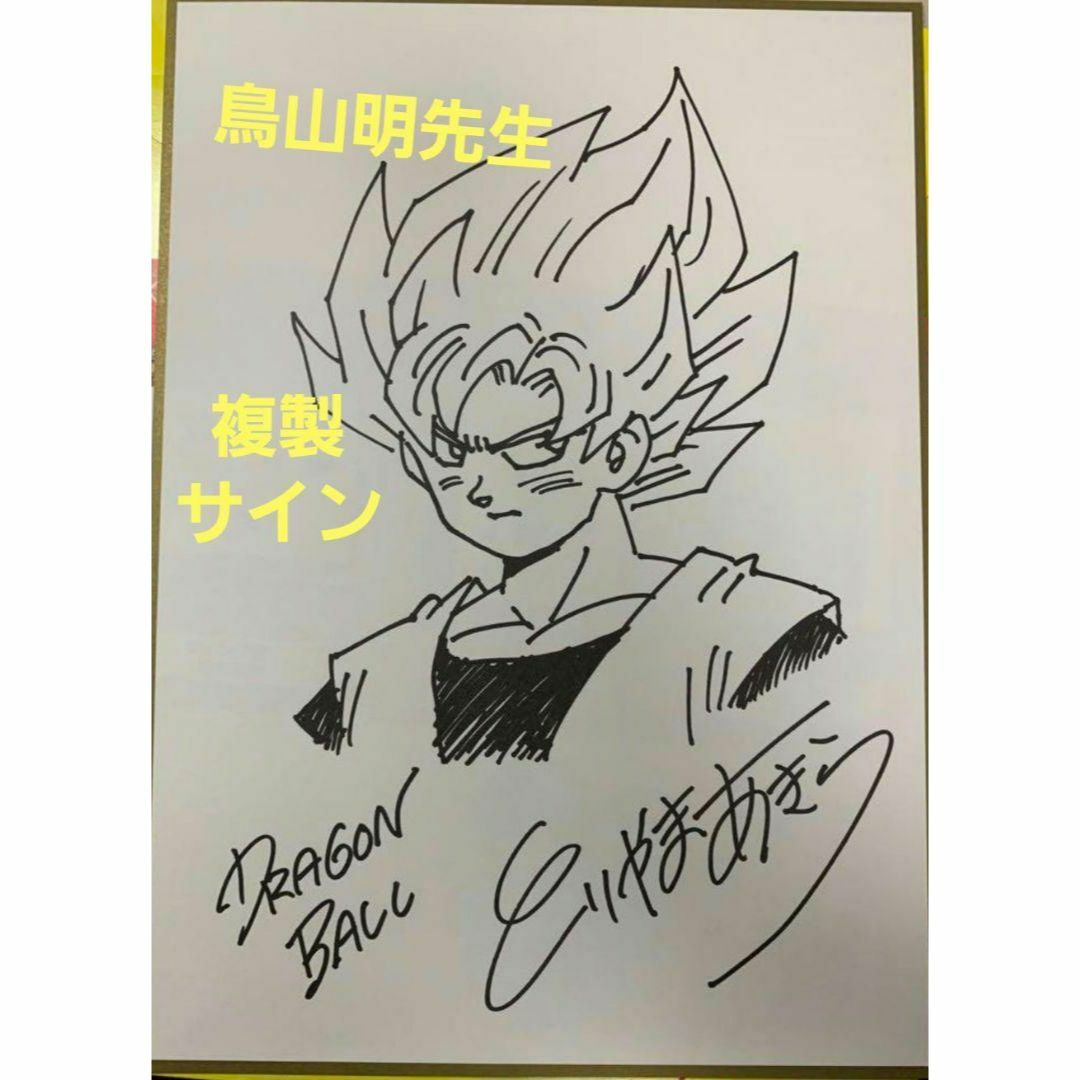 鳥山明先生
複製
サイン
DRAGON
BALL
とりやまあきら